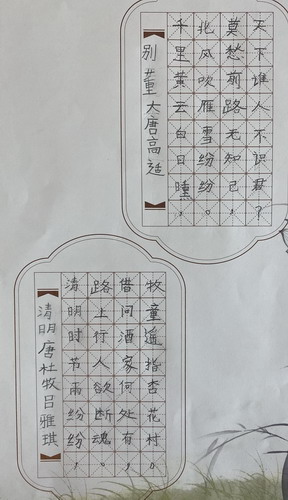 别董大唐高适
千里黄云白日曛，
北风吹雁雪纷纷。
莫愁前路无知己，
天下谁人不识君？
清明唐杜牧吕雅琪
清明时节雨纷纷，
路上行人欲断魂。
借问酒家何处有，
牧童遥指杏花村。